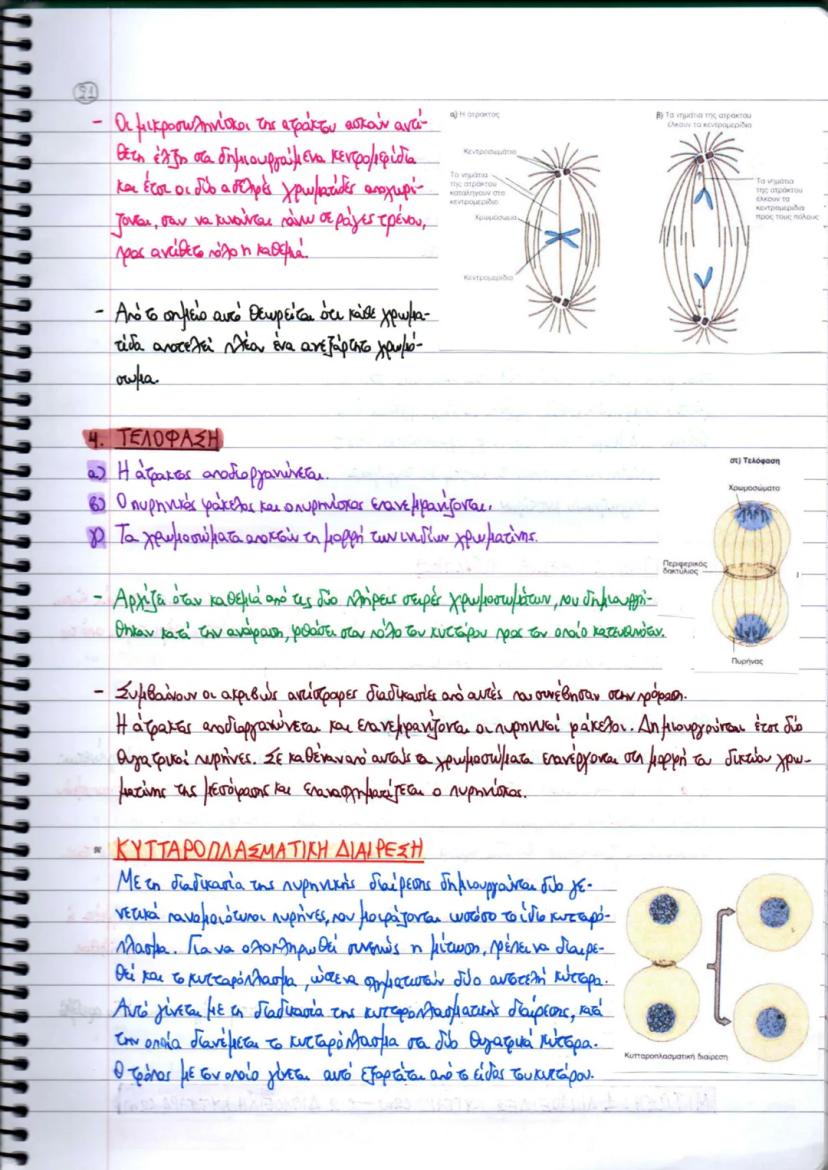 21
- Οι μικροσωληνίσκοι της ατράκτου ασκούν αντί-
θετη έλξη στα δημιουργημένα κεντρομερίδια
και έτσι οι δύο αδελφές χρωματίδες αποχωρί-
ζονται, σαν να κινούνται πάνω σε ράγες τρένου,
προς αντίθετο πόλο η καθεμιά.
- Από το σημείο αυτό θεωρείται ότι κάθε χρωμα-
τίδα αποτελεί πλέον ένα ανεξάρτητο χρωμό-
σωμα.
α) Η άτρακτος
Κεντροσωμάτιο
Τα νημάτια
της ατράκτου
καταλήγουν στο
κεντρομερίδιο
Χρωμόσωμα
Κεντρομερίδιο
β) Τα νημάτια της ατράκτου
έλκουν τα κεντρομερίδια
Τα νημάτια
της ατράκτου
έλκουν τα
κεντρομερίδια
προς τους πόλους
4. ΤΕΛΟΦΑΣΗ
α) Η άτρακτος αποδιοργανώνεται.
β) Ο πυρηνικός φάκελος και ο πυρηνίσκος επανεμφανίζονται.
γ) Τα χρωμοσώματα αποκτούν τη μορφή των ινιδίων χρωματίνης.
- Αρχίζει όταν καθεμιά από τις δύο πλήρεις σειρές χρωμοσωμάτων, που δημιουργή-
θηκαν κατά την ανάφαση, φθάσει στον πόλο του κυττάρου προς τον οποίο κατευθυνόταν.
στ) Τελόφαση
Χρωμοσώματα
Περιφερικός
δακτύλιος
Πυρήνας
- Συμβαίνουν οι ακριβώς αντίστροφες διαδικασίες από αυτές που συνέβησαν στην πρόφαση.
Η άτρακτος αποδιοργανώνεται και επανεμφανίζονται οι πυρηνικοί φάκελοι. Δημιουργούνται έτσι δύο
θυγατρικοί πυρήνες. Σε καθέναν από αυτούς τα χρωμοσώματα επανέρχονται στη μορφή του δικτύου χρω-
ματίνης της μεσόφασης και επανασχηματίζεται ο πυρηνίσκος.
* ΚΥΤΤΑΡΟΠΛΑΣΜΑΤΙΚΗ ΔΙΑΙΡΕΣΗ
Με τη διαδικασία της πυρηνικής διαίρεσης δημιουργούνται δύο γε-
νετικά πανομοιότυποι πυρήνες, που μοιράζονται ωστόσο το ίδιο κυτταρό-
πλασμα. Για να ολοκληρωθεί συνεπώς η μίτωση, πρέπει να διαιρε-
θεί και το κυτταρόπλασμα, ώστε να σχηματιστούν δύο αυτοτελή κύτταρα.
Αυτό γίνεται με τη διαδικασία της κυτταροπλασματικής διαίρεσης, κατά
την οποία διανέμεται το κυτταρόπλασμα στα δύο θυγατρικά κύτταρα.
Ο τρόπος με τον οποίο γίνεται αυτό εξαρτάται από το είδος του κυττάρου.
Κυτταροπλασματική διαίρεση